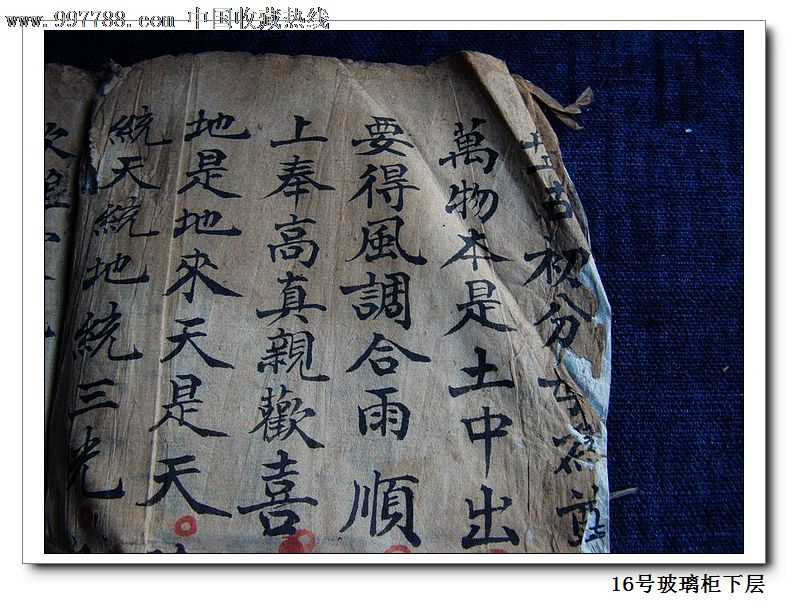 www.997788.com 中国收藏热线
初分
萬物本是土中出
要得風調合雨順
上奉高真親歡喜
地是地來天是天
統天統地統三光
16号玻璃柜下层